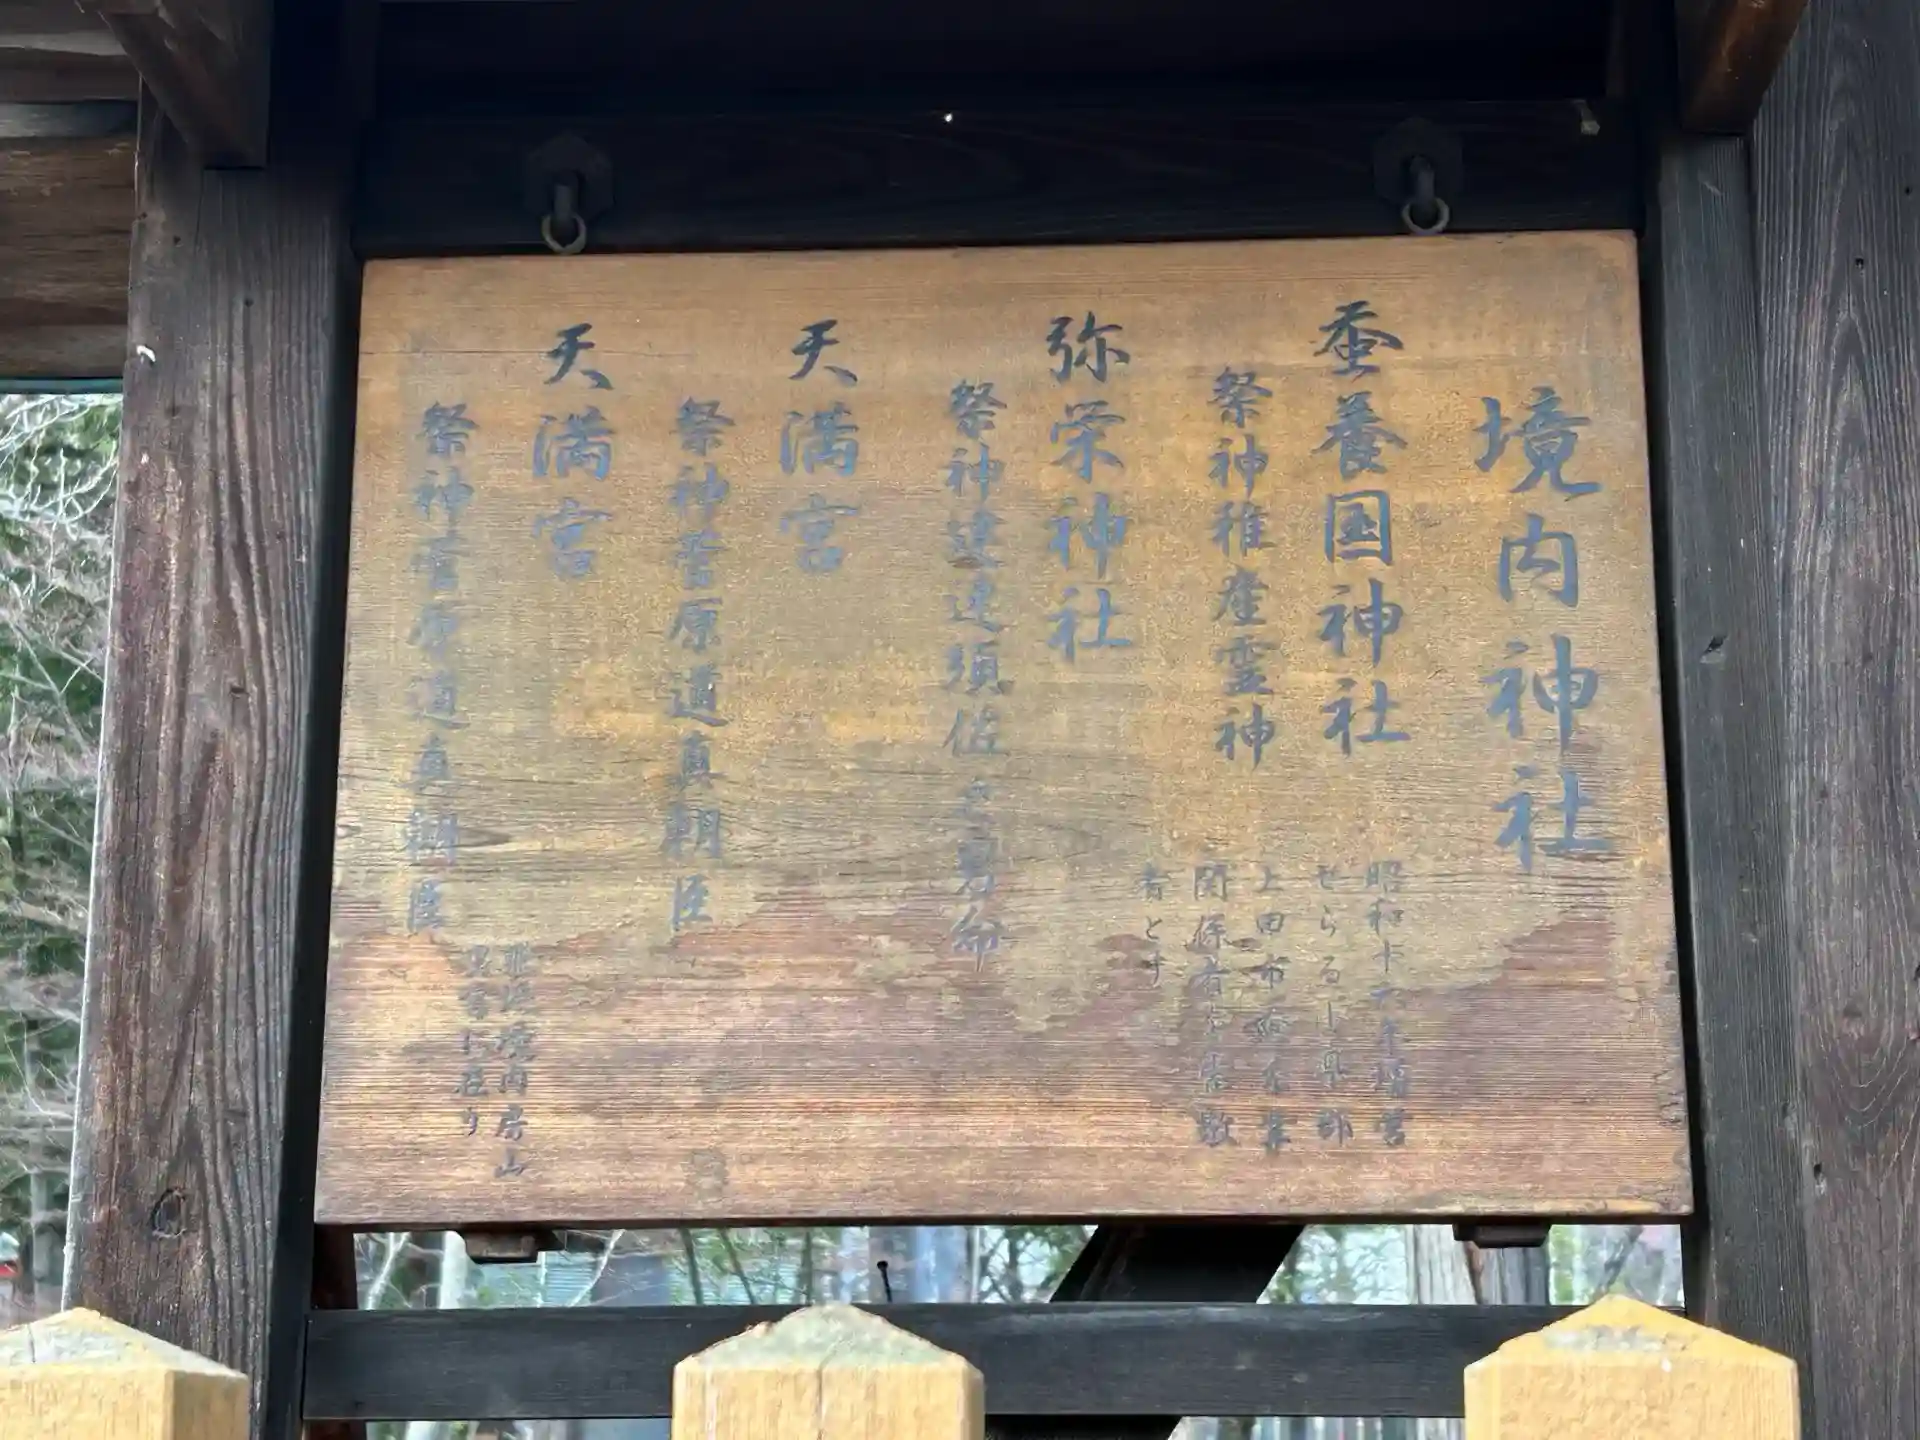 境内神社
蚕養国神社
祭神稚産霊神
昭和十六年造営
せらる小県郡
上田市蚕糸業
関係者を崇敬
者とす
弥栄神社
祭神建速須佐之男命
天満宮
祭神菅原道真朝臣
天満宮
祭神菅原道真朝臣
飛地境内房山
に在り